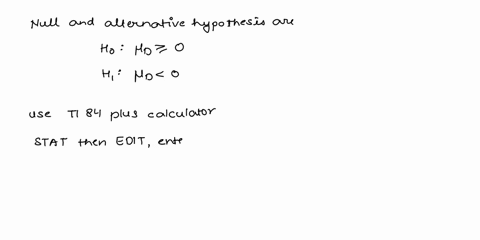 Null and alternative hypothesis are
H₀ : μD ≥ 0
H₁ : μD < 0
use TI 84 plus calculator
STAT then EDIT, ente